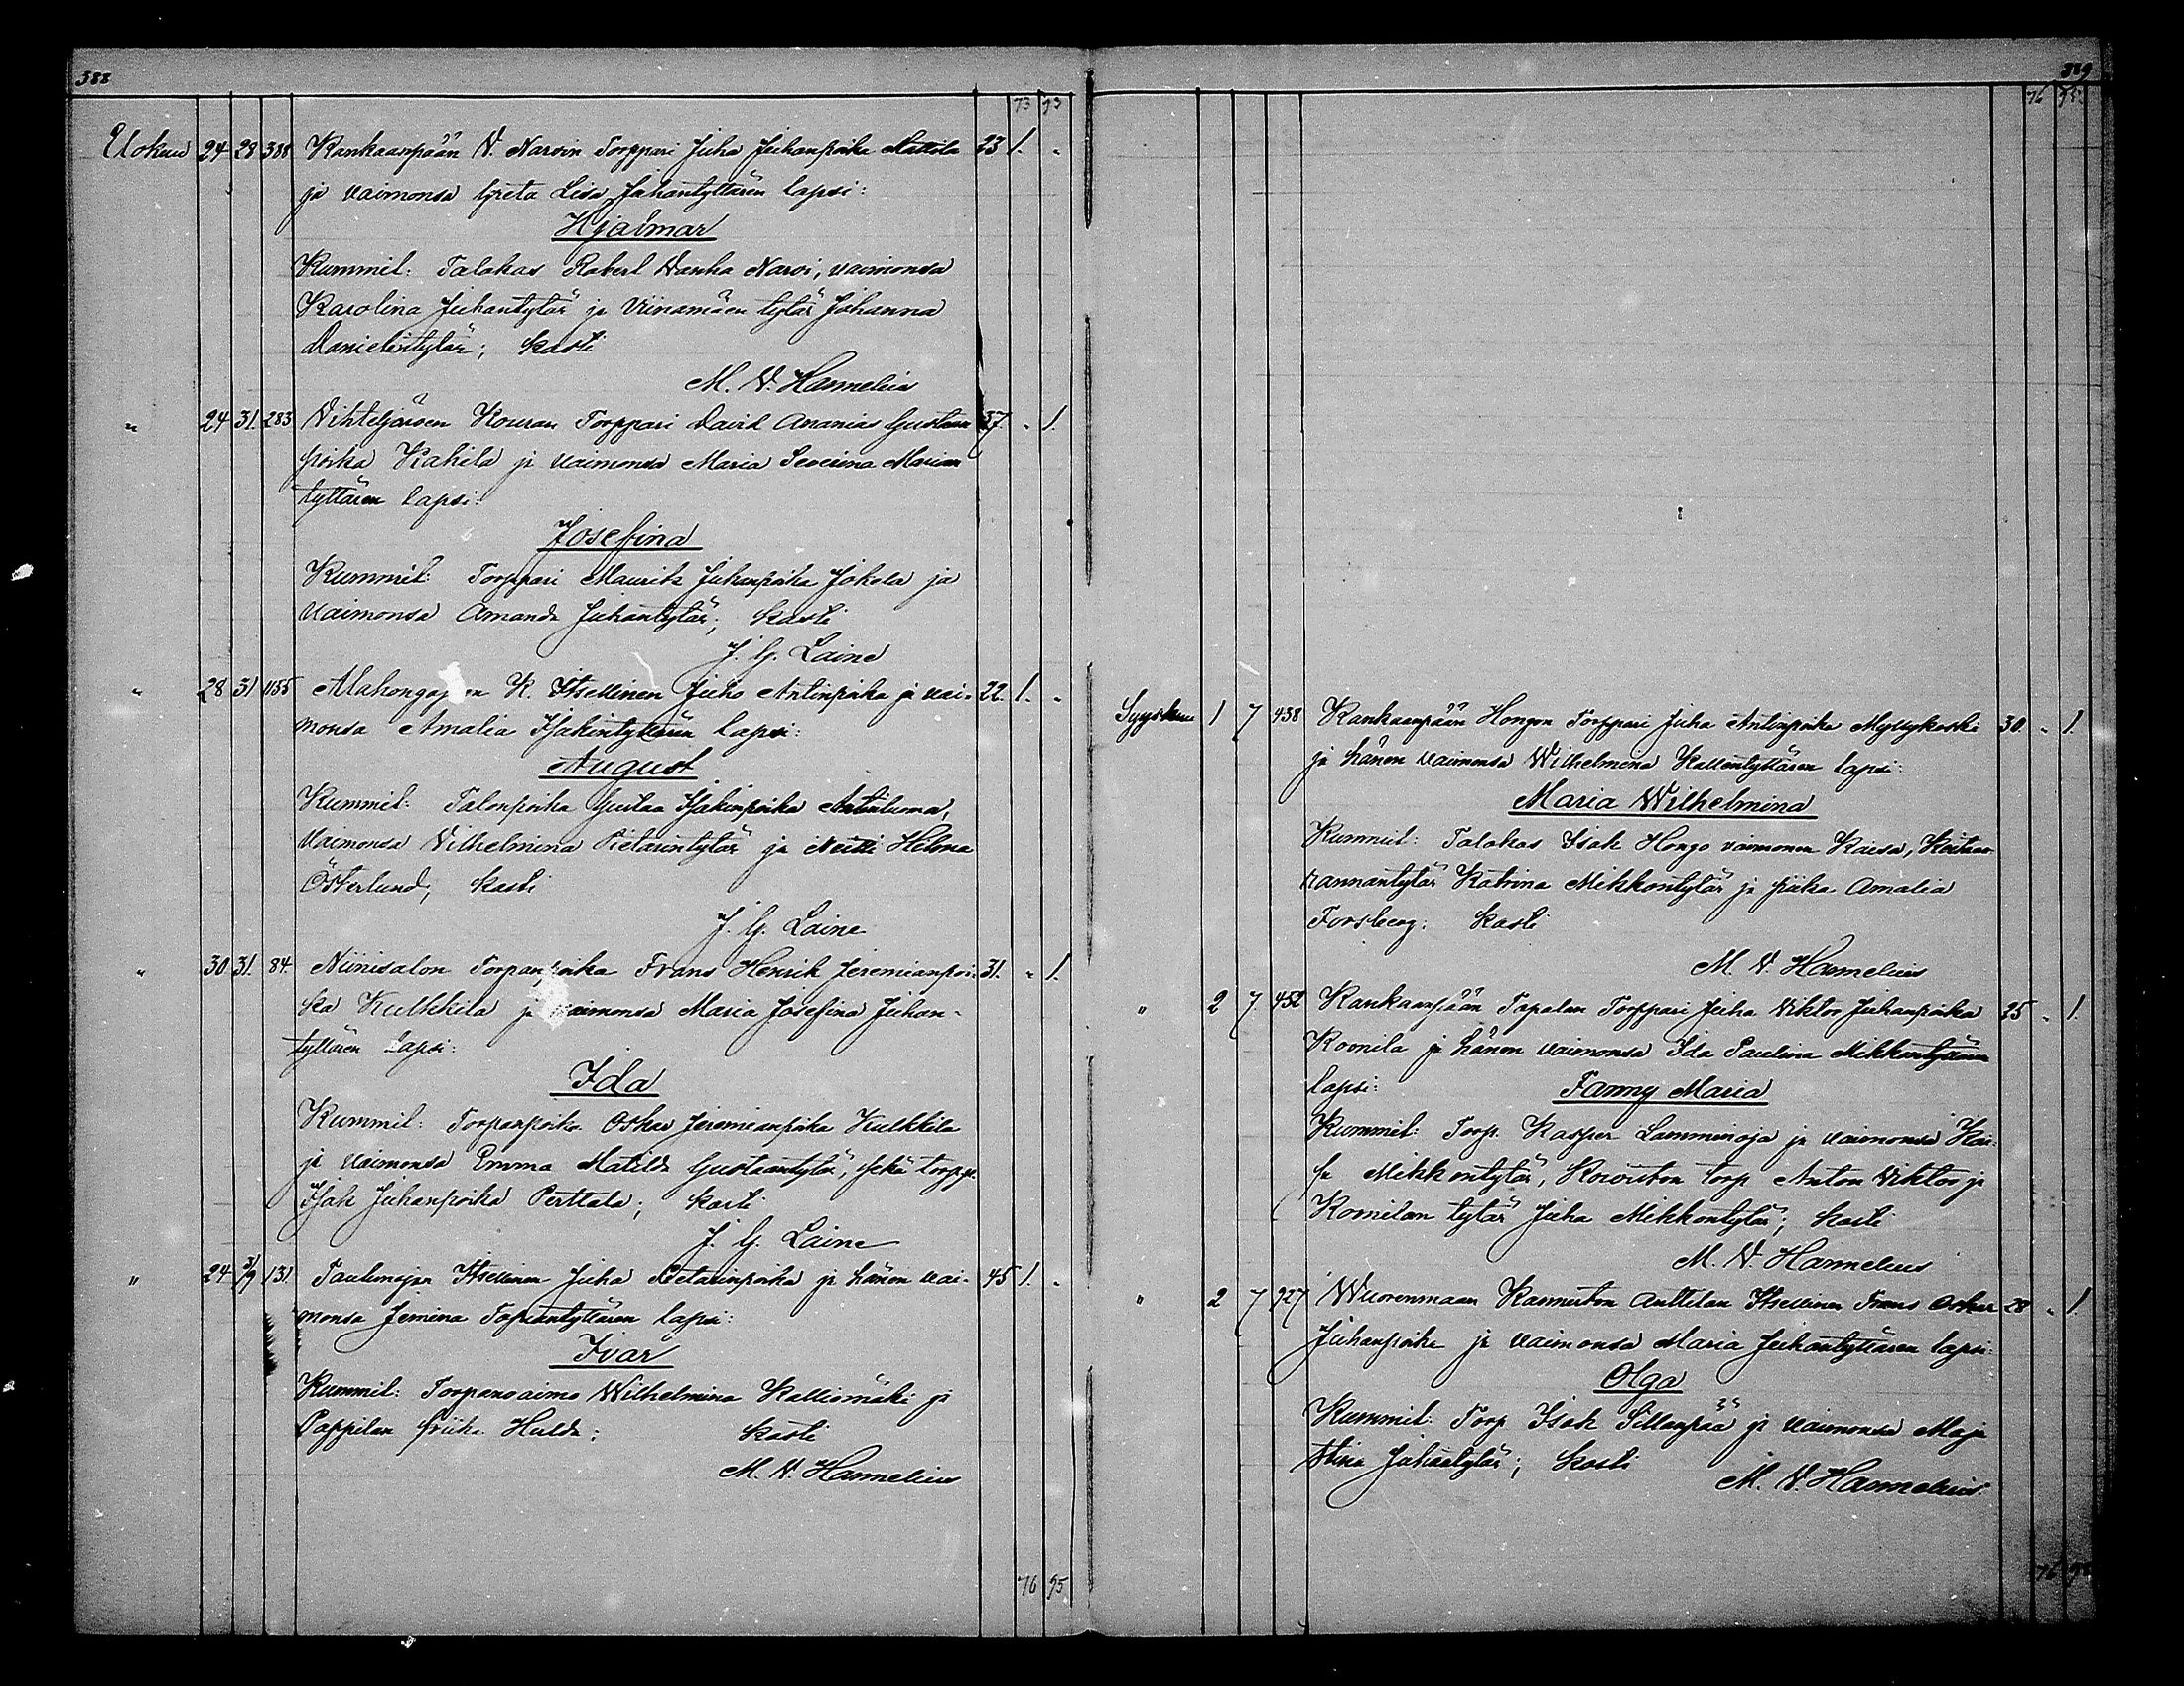 388
73 93
Elokuu 24 28 388 Kankaanpään V. Narvin Torppari Juha Juhanpoika Mattila 23 1. "
ja vaimonsa Greta Lisa Juhantyttären lapsi:
Hjalmar
Kummit: Talokas Robert Vanha Narvi, vaimonsa
Karolina Juhantytär ja Viinamäen tytär Johanna
Danielintytär; kasti
M. V. Hannelius
" 24 31. 283 Vihteljärven Kouran Torppari David Ananias Gustaan 37. " 1.
poika Kahila ja vaimonsa Maria Severina Marian
tyttären lapsi:
Josefina
Kummit: Torppari Maurits Juhanpoika Jokela ja
vaimonsa Amanda Juhantytär; kasti
J. G. Laine
" 28 31 1155 Alahongajoen K. Itsellinen Juho Antinpoika ja vai- 22. 1. "
monsa Amalia Isakintyttären lapsi:
August
Kummit: Talonpoika Gustaa Isakinpoika
vaimonsa Vilhelmina Pietarintytär ja Neitti Helma
Österlund; kasti
J. G. Laine
" 30 31. 84. Niinisalon Torpanpoika Frans Henrik Jeremianpoi- 31. " 1.
ka Kulkkila ja vaimonsa Maria Josefina Juhan-
tyttären lapsi:
Ida
Kummit: Torpanpoika Oskar Jeremianpoika Kulkkila
ja vaimonsa Emma Matilda Gustaantytär, sekä torpp.
Isak Juhanpoika Perttala; kasti
J. G. Laine
" 24 3/9 131. Itsellinen Juha Pietarinpoika ja hänen vai- 45 1. "
monsa Jemina Topiantyttären lapsi:
Ivar
Kummit: Torpanvaimo Wilhelmina Kalliomäki ja
Pappilan piika Hulda; kasti
M. V. Hannelius
76 95
389
76 95.
Syyskuu 1 7 438 Kankaanpään Hongon Torppari Juha Antinpoika Myllykoski 30. " 1.
ja hänen vaimonsa Wilhelmina Kallentyttären lapsi:
Maria Wilhelmina
Kummit: Talokas Isak Hongo vaimonen Kaisa,
rannantytär Katrina Mikkontytär ja piika Amalia
Forsberg; kasti
M. V. Hannelius
" 2 7. 452 Kankaanpään Tapalan Torppari Juha Viktor Juhanpoika 25 " 1.
Koonila ja hänen vaimonsa Ida Paulina Mikkontyttären
lapsi: Fanny Maria
Kummit: Torp. Kasper Lamminoja ja vaimonsa Kai-
sa Mikkontytär, torp Anton Viktor ja
tytär Juha Mikkontytär; kasti
M. V. Hannelius
" 2 7 927 Wuorenmaan Anttilan Itsellinen Frans Oskar 28 " 1.
Juhanpoika ja vaimonsa Maria Juhantyttären lapsi:
Olga
Kummit: Torp Isak Sillanpää ja vaimonsa Maja
Stina Juhantytär; kasti
M. V. Hannelius
76